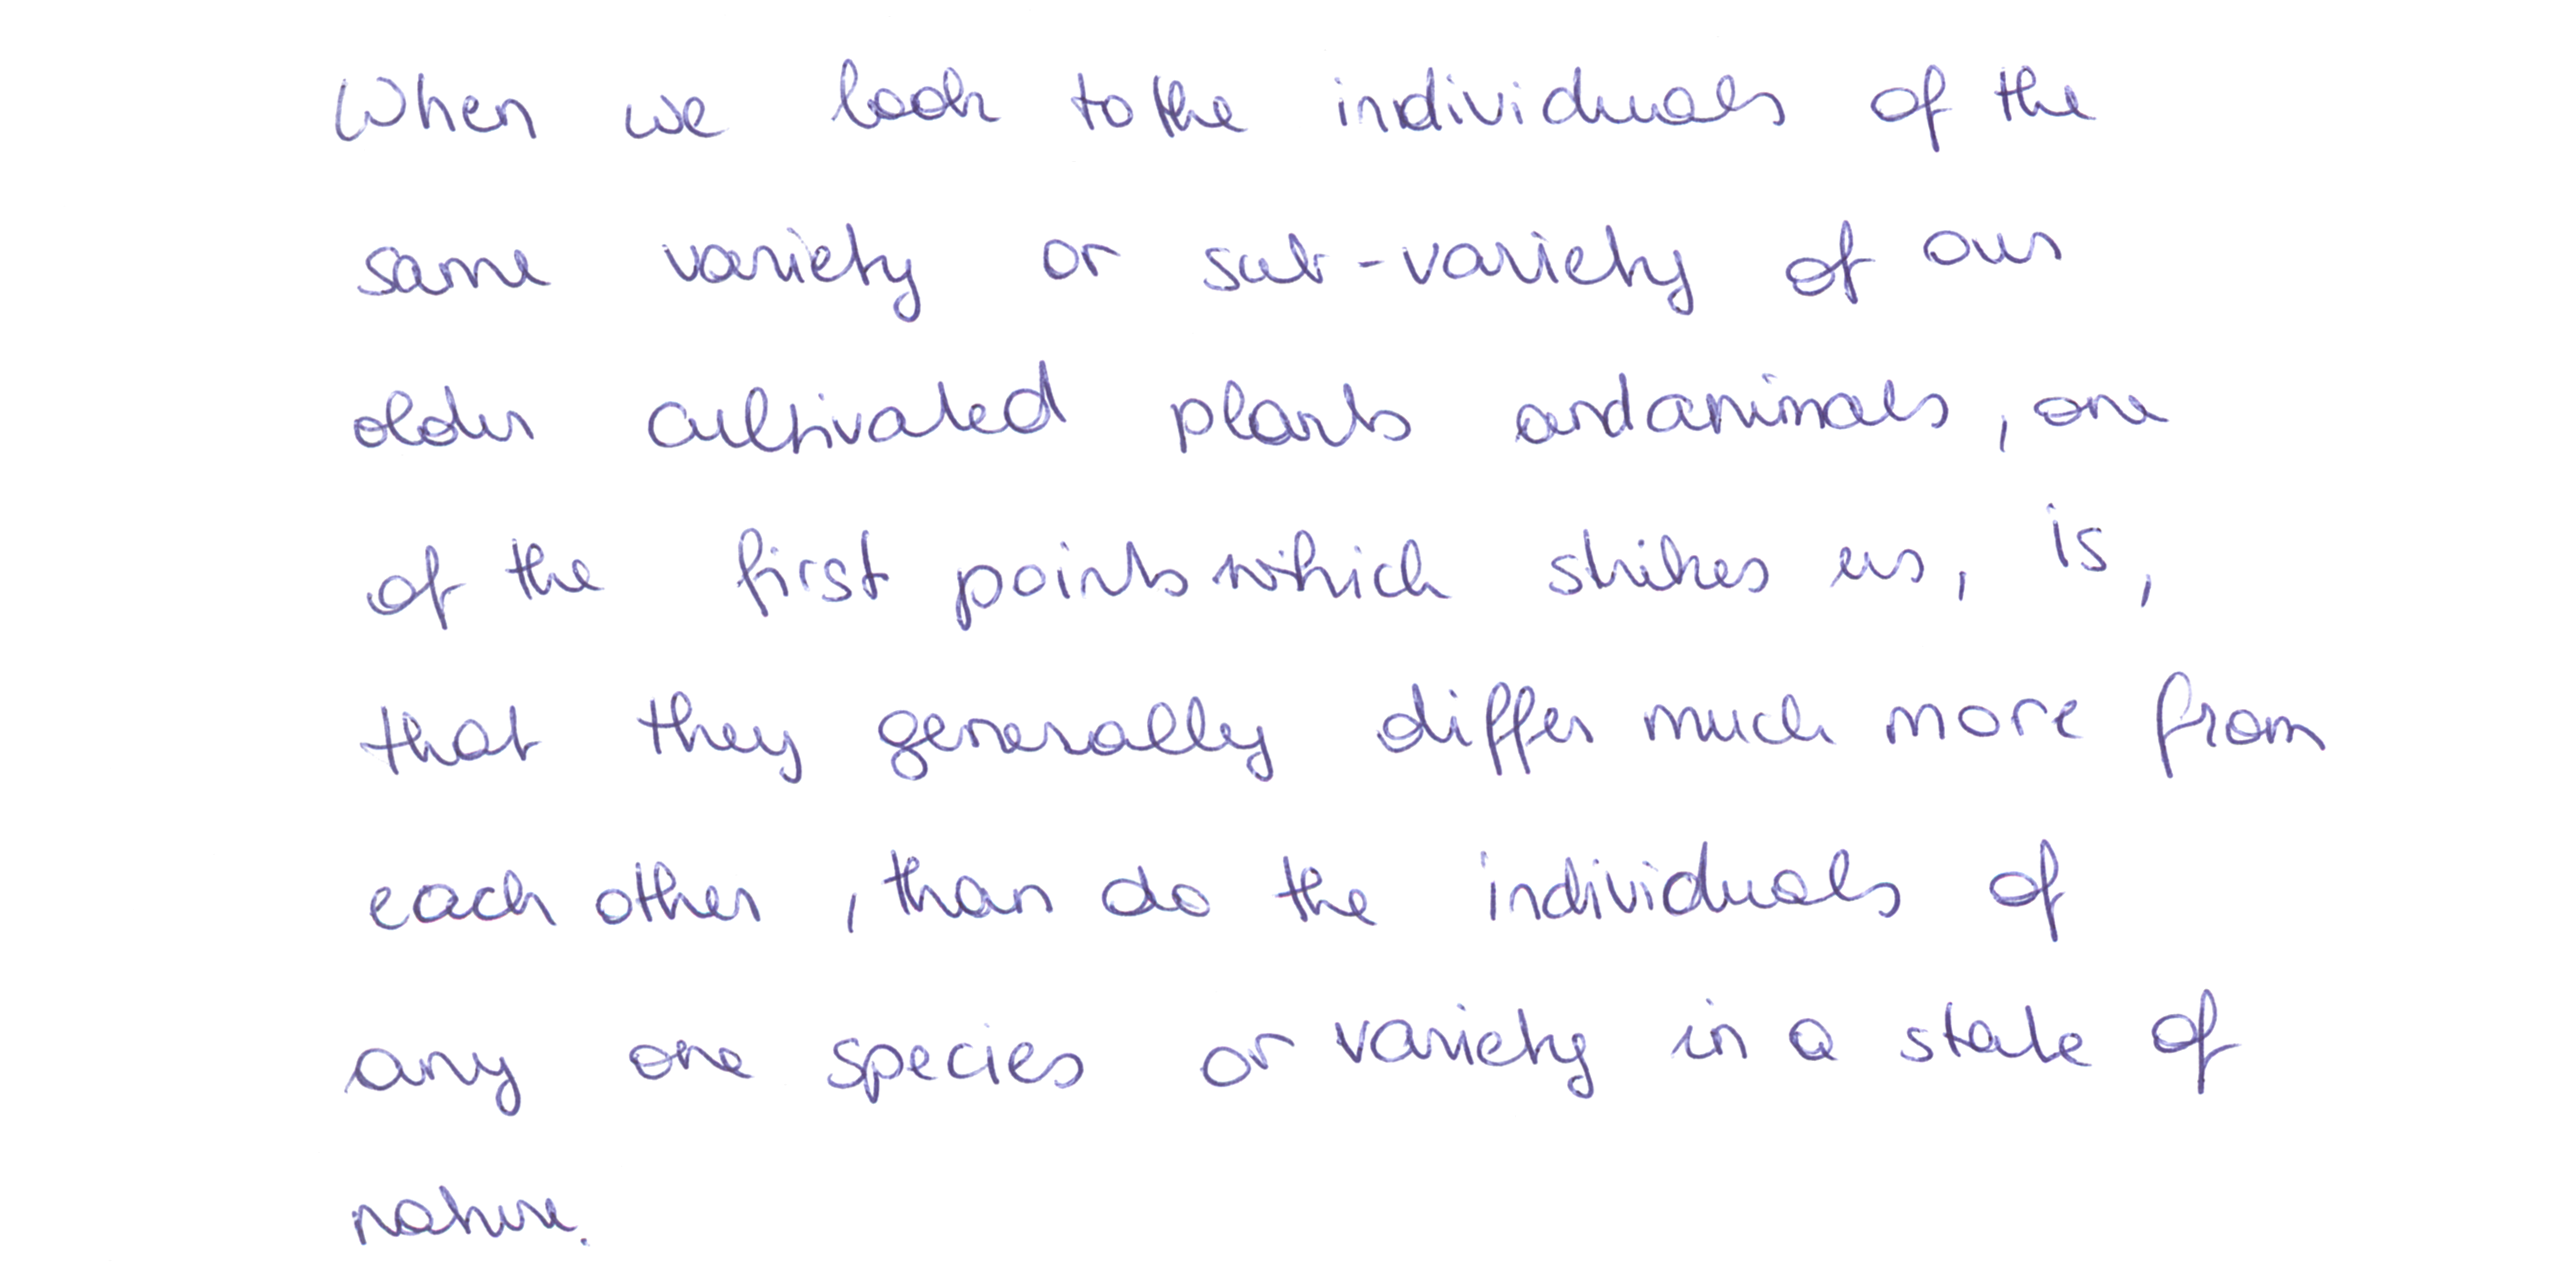 When we look to the individuals of the
same variety or sub-variety of our
older cultivated plants and animals, one
of the first points which strikes us, is,
that they generally differ much more from
each other, than do the individuals of
any one species or variety in a state of
nature.